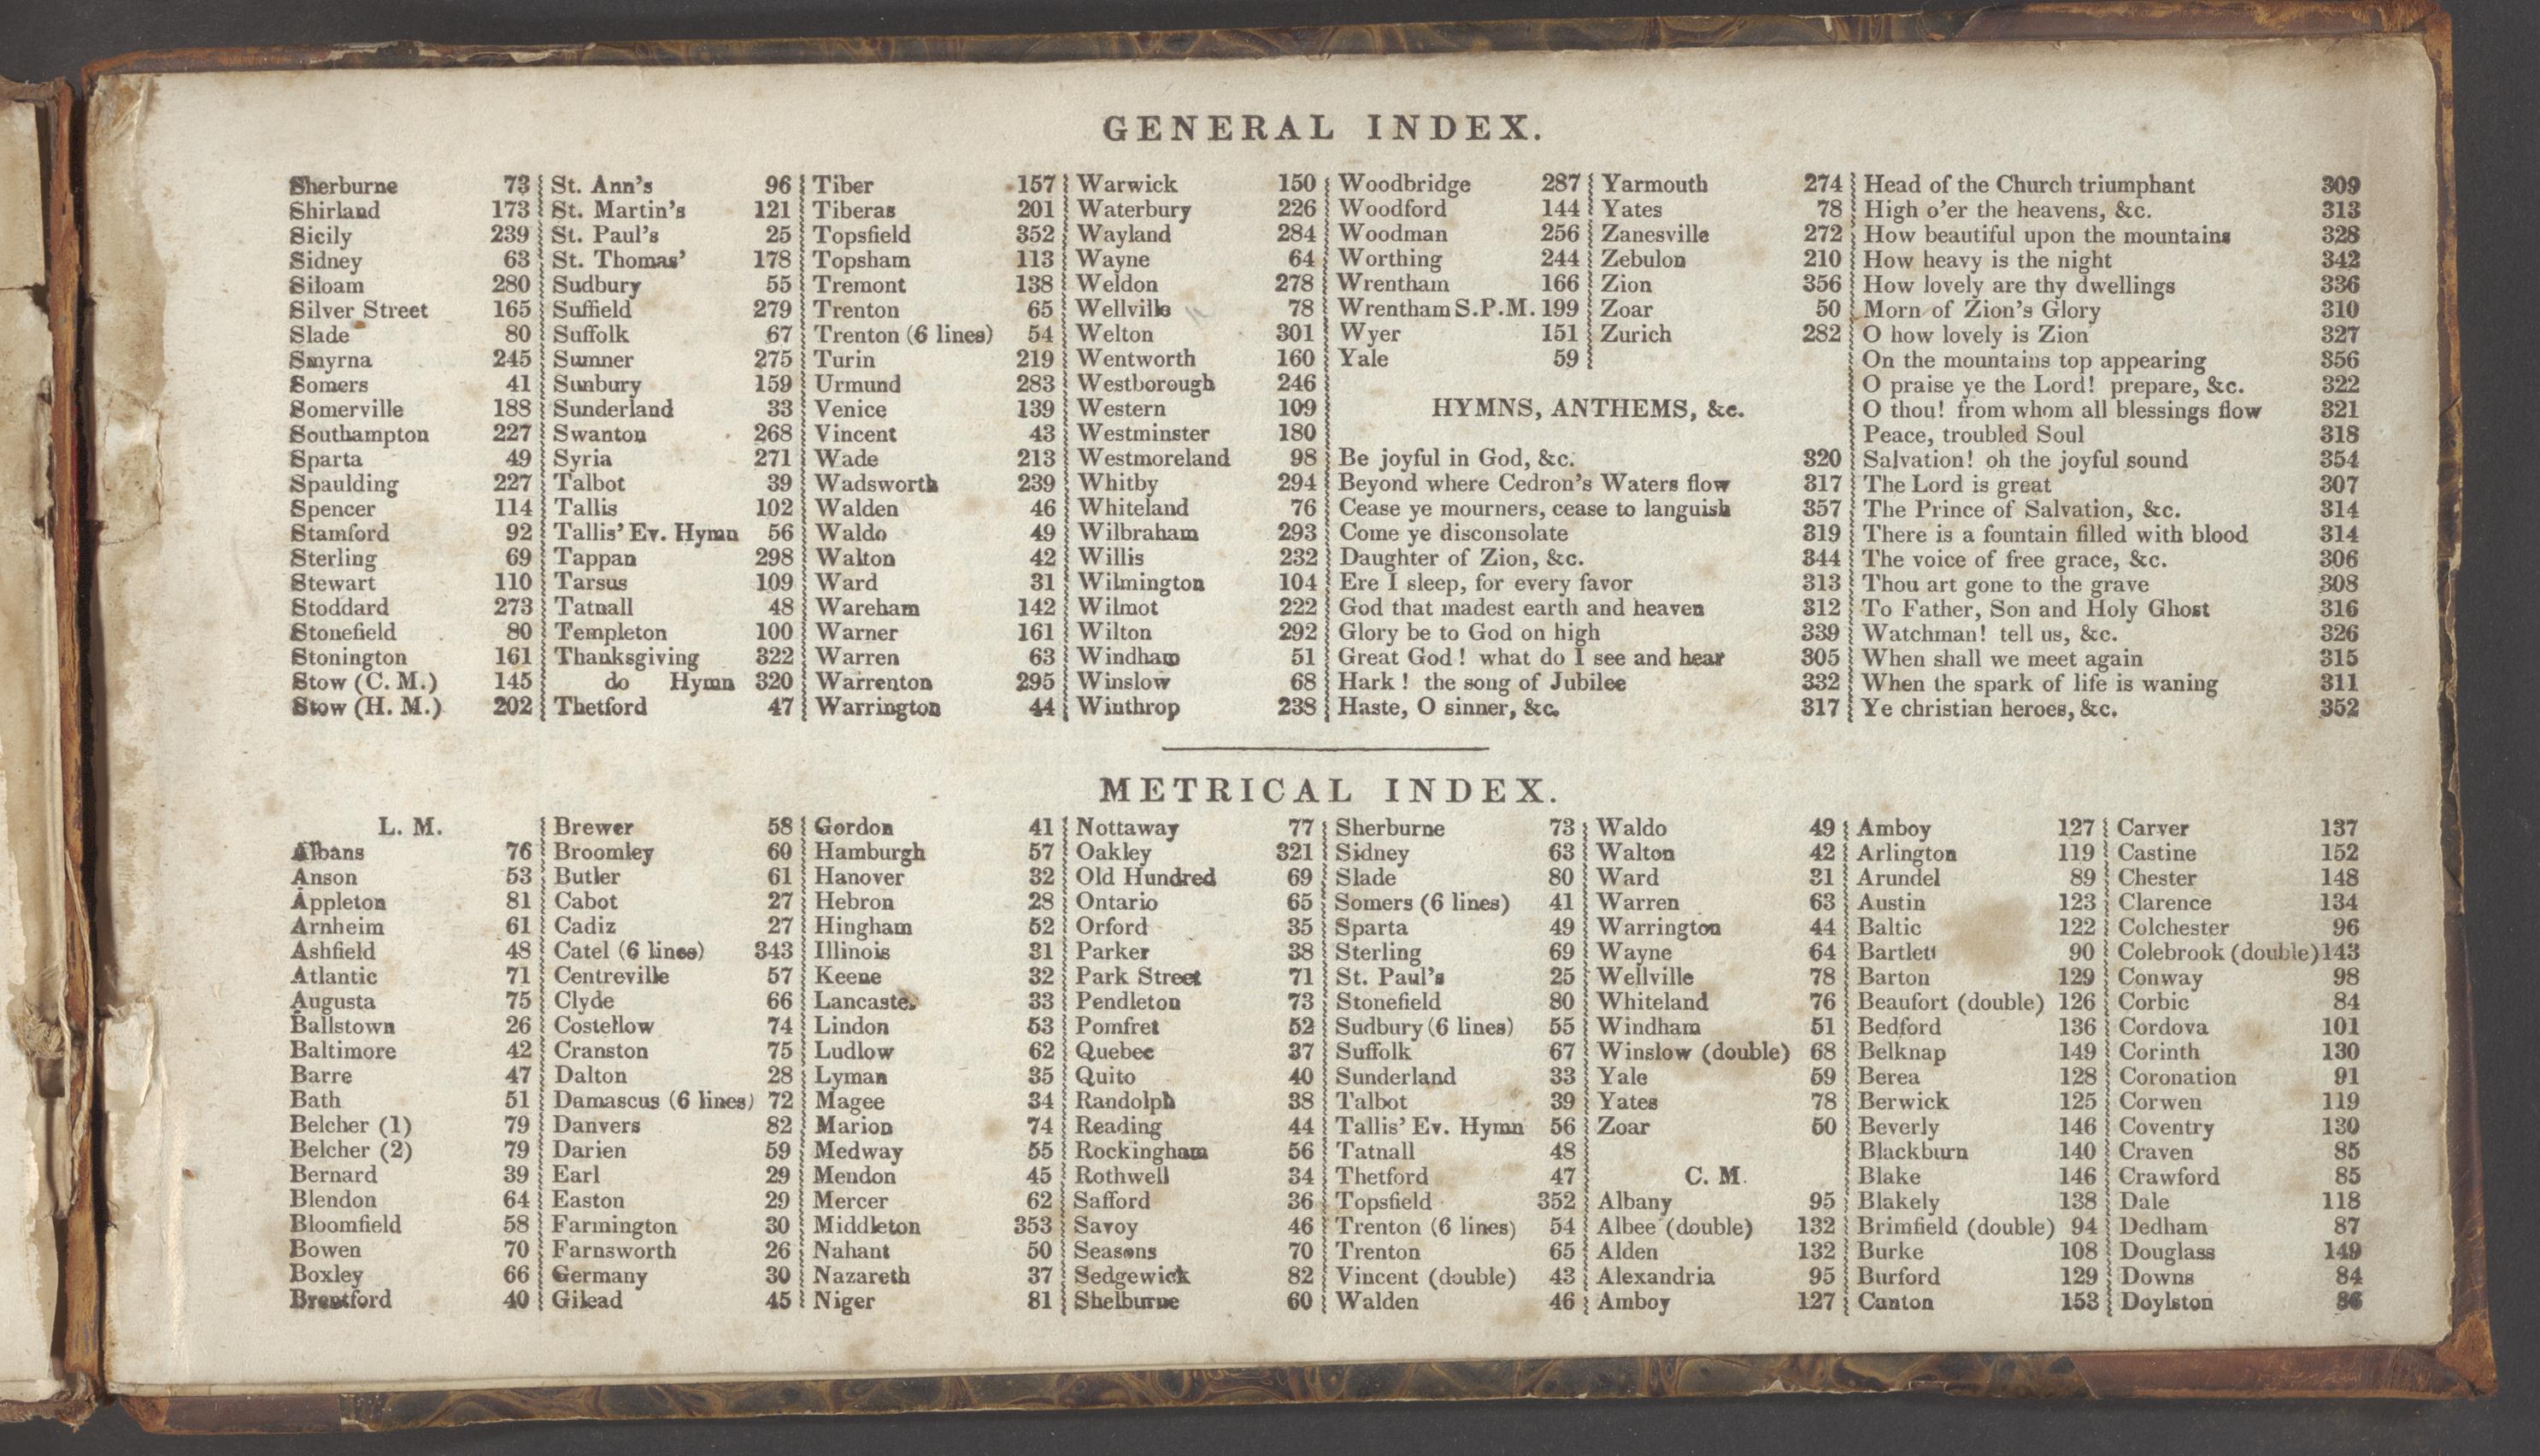 GENERAL INDEX.
Sherburne 73
Shirland 173
Sicily 239
Sidney 63
Siloam 280
Silver Street 165
Slade 80
Smyrna 245
Somers 41
Somerville 188
Southampton 227
Sparta 49
Spaulding 227
Spencer 114
Stamford 92
Sterling 69
Stewart 110
Stoddard 273
Stonefield 80
Stonington 161
Stow (C. M.) 145
Stow (H. M.) 202
St. Ann's 96
St. Martin's 121
St. Paul's 25
St. Thomas' 178
Sudbury 55
Suffield 279
Suffolk 67
Sumner 275
Sunbury 159
Sunderland 33
Swanton 268
Syria 271
Talbot 39
Tallis 102
Tallis' Ev. Hymn 56
Tappan 298
Tarsus 109
Tatnall 48
Templeton 100
Thanksgiving 322
do Hymn 320
Thetford 47
Tiber 157
Tiberas 201
Topsfield 352
Topsham 113
Tremont 138
Trenton 65
Trenton (6 lines) 54
Turin 219
Urmund 283
Venice 139
Vincent 43
Wade 213
Wadsworth 239
Walden 46
Waldo 49
Walton 42
Ward 31
Wareham 142
Warner 161
Warren 63
Warrenton 295
Warrington 44
Warwick 150
Waterbury 226
Wayland 284
Wayne 64
Weldon 278
Wellville 78
Welton 301
Wentworth 160
Westborough 246
Western 109
Westminster 180
Westmoreland 98
Whitby 294
Whiteland 76
Wilbraham 293
Willis 232
Wilmington 104
Wilmot 222
Wilton 292
Windham 51
Winslow 68
Winthrop 238
Woodbridge 287
Woodford 144
Woodman 256
Worthing 244
Wrentham 166
Wrentham S.P.M. 199
Wyer 151
Yale 59
Yarmouth 274
Yates 78
Zanesville 272
Zebulon 210
Zion 356
Zoar 50
Zurich 282
HYMNS, ANTHEMS, &c.
Be joyful in God, &c. 320
Beyond where Cedron's Waters flow 317
Cease ye mourners, cease to languish 357
Come ye disconsolate 319
Daughter of Zion, &c. 344
Ere I sleep, for every favor 313
God that madest earth and heaven 312
Glory be to God on high 339
Great God! what do I see and hear 305
Hark! the song of Jubilee 332
Haste, O sinner, &c. 317
Head of the Church triumphant 309
High o'er the heavens, &c. 313
How beautiful upon the mountains 328
How heavy is the night 342
How lovely are thy dwellings 336
Morn of Zion's Glory 310
O how lovely is Zion 327
On the mountains top appearing 356
O praise ye the Lord! prepare, &c. 322
O thou! from whom all blessings flow 321
Peace, troubled Soul 318
Salvation! oh the joyful sound 354
The Lord is great 307
The Prince of Salvation, &c. 314
There is a fountain filled with blood 314
The voice of free grace, &c. 306
Thou art gone to the grave 308
To Father, Son and Holy Ghost 316
Watchman! tell us, &c. 326
When shall we meet again 315
When the spark of life is waning 311
Ye christian heroes, &c. 352
METRICAL INDEX.
L. M.
Albans 76
Anson 53
Appleton 81
Arnheim 61
Ashfield 48
Atlantic 71
Augusta 75
Ballstown 26
Baltimore 42
Barre 47
Bath 51
Belcher (1) 79
Belcher (2) 79
Bernard 39
Blendon 64
Bloomfield 58
Bowen 70
Boxley 66
Brentford 40
Brewer 58
Broomley 60
Butler 61
Cabot 27
Cadiz 27
Catel (6 lines) 343
Centreville 57
Clyde 66
Costellow 74
Cranston 75
Dalton 28
Damascus (6 lines) 72
Danvers 82
Darien 59
Earl 29
Easton 29
Farmington 30
Farnsworth 26
Germany 30
Gilead 45
Gordon 41
Hamburgh 57
Hanover 32
Hebron 28
Hingham 52
Illinois 31
Keene 32
Lancaster 33
Lindon 53
Ludlow 62
Lyman 35
Magee 34
Marion 74
Medway 55
Mendon 45
Mercer 62
Middleton 353
Nahant 50
Nazareth 37
Niger 81
Nottaway 77
Oakley 321
Old Hundred 69
Ontario 65
Orford 35
Parker 38
Park Street 71
Pendleton 73
Pomfret 52
Quebec 37
Quito 40
Randolph 38
Reading 44
Rockingham 56
Rothwell 34
Safford 36
Savoy 46
Seasons 70
Sedgewick 82
Shelburne 60
Sherburne 73
Sidney 63
Slade 80
Somers (6 lines) 41
Sparta 49
Sterling 69
St. Paul's 25
Stonefield 80
Sudbury (6 lines) 55
Suffolk 67
Sunderland 33
Talbot 39
Tallis' Ev. Hymn 56
Tatnall 48
Thetford 47
Topsfield 352
Trenton (6 lines) 54
Trenton 65
Vincent (double) 43
Walden 46
Waldo 49
Walton 42
Ward 31
Warren 63
Warrington 44
Wayne 64
Wellville 78
Whiteland 76
Windham 51
Winslow (double) 68
Yale 59
Yates 78
Zoar 50
C. M.
Albany 95
Albee (double) 132
Alden 132
Alexandria 95
Amboy 127
Amboy 127
Arlington 119
Arundel 89
Austin 123
Baltic 122
Bartlett 90
Barton 129
Beaufort (double) 126
Bedford 136
Belknap 149
Berea 128
Berwick 125
Beverly 146
Blackburn 140
Blake 146
Blakely 138
Brimfield (double) 94
Burke 108
Burford 129
Canton 153
Carver 137
Castine 152
Chester 148
Clarence 134
Colchester 96
Colebrook (double) 143
Conway 98
Corbic 84
Cordova 101
Corinth 130
Coronation 91
Corwen 119
Coventry 130
Craven 85
Crawford 85
Dale 118
Dedham 87
Douglass 149
Downs 84
Doylston 86